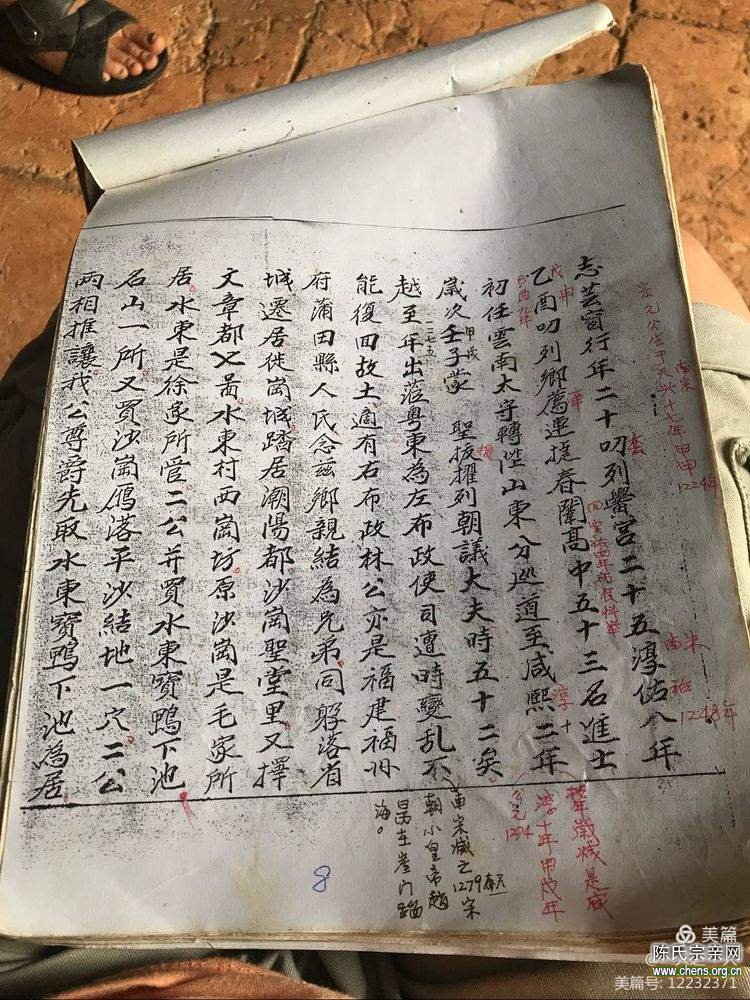 志芸窗行年二十叨列黌宮二十五淳佑八年
乙酉叨列鄉薦連捷春闈高中五十三名進士
初任雲南太守轉陞山東分巡道至咸熙二年
歲次壬子蒙 聖拔擢列朝議大夫時五十二矣
越至年出蒞粵東為左布政使司遭時變乱不
能復回故土適有右布政林公亦是福建福州
府蒲田縣人氏念茲鄉親結為兄弟同躲落省
城遷居徙崗城踏居潮陽都沙崗聖堂里又擇
文章都乂啚水東村西崗坊原沙崗是毛家所
居水東是徐家所管二公并買水東寶鴨下池
名山一所又買沙崗鴈落平沙結地一穴二公
兩相推讓我公尊爵先取水東寶鴨下池為居
南宋
宋元公生于天 十七年甲申
1224年
南宋
祐
1248年
戊申
淳十
甲戌
一二七五
按年歲減是咸
淳十年甲戌年
公元1274
南宋滅亡
1279年宋
朝小皇帝趙
昺在崖门蹈
海。
8
美篇
美篇号: 12232371
陈氏宗亲网
www.chens.org.cn